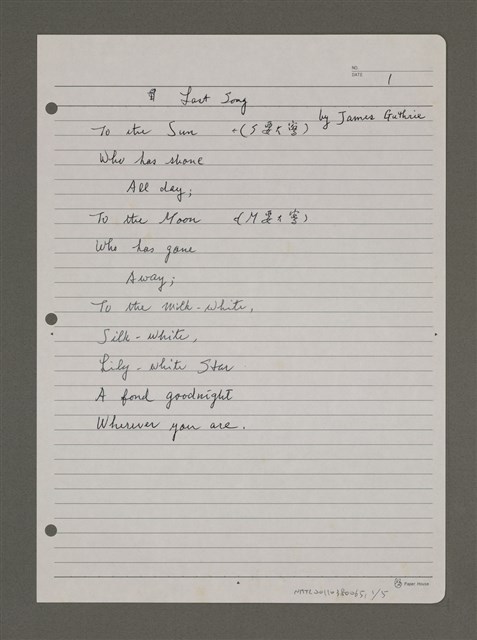 NO.
DATE 1
Last Song
by James Guthrie
To the Sun (S要大寫)
Who has shone
All day;
To the Moon (M要大寫)
Who has gone
Away;
To the milk-white,
Silk-white,
Lily-white Star
A fond goodnight
Wherever you are.
Paper House